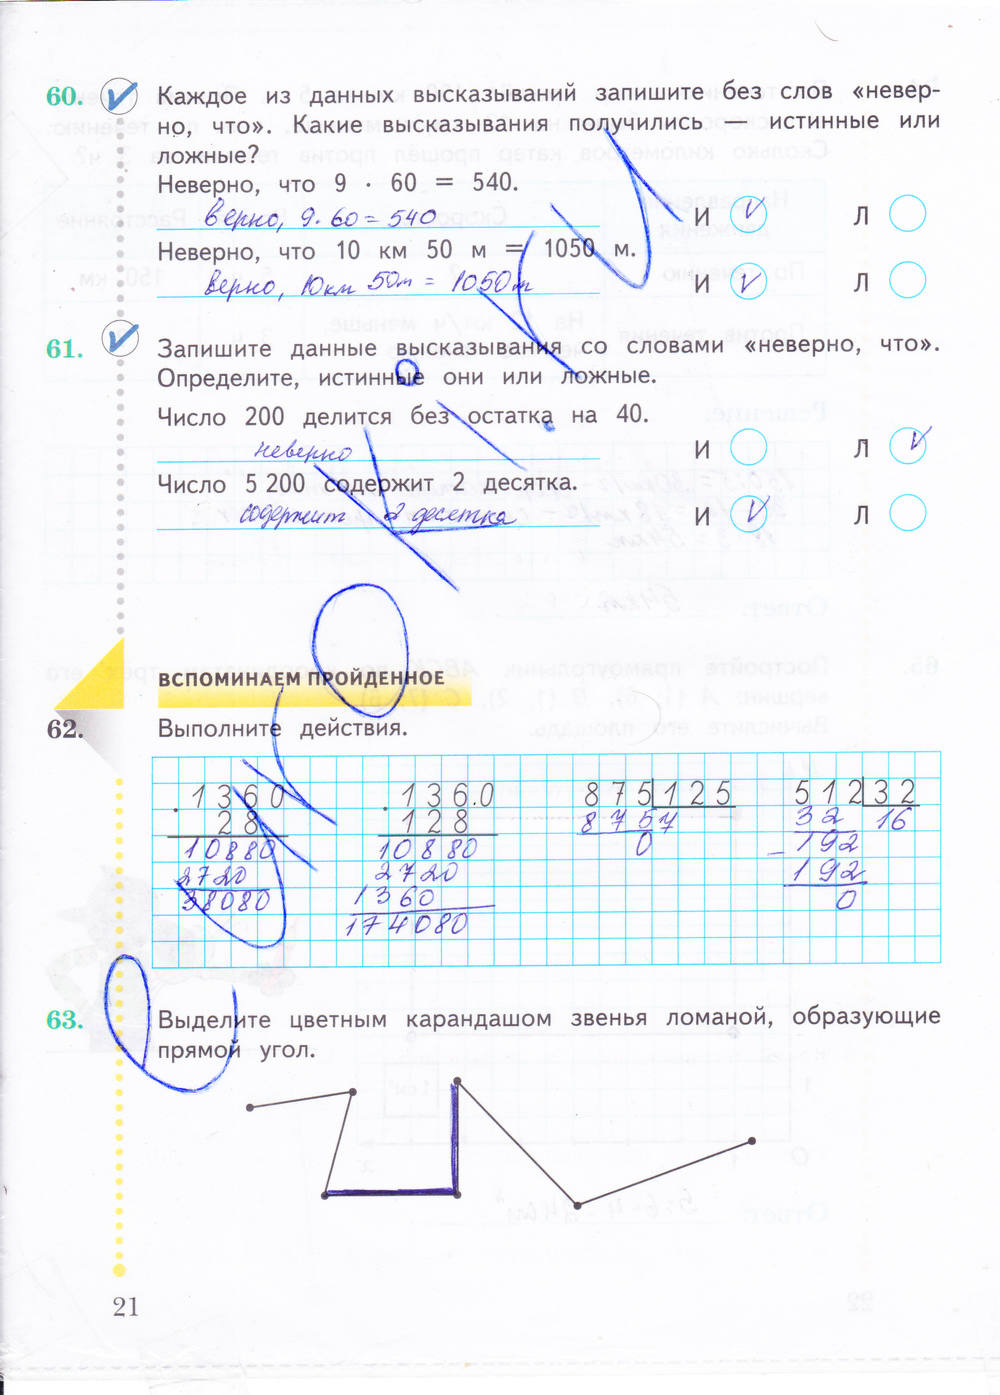 60. Каждое из данных высказываний запишите без слов «невер-
но, что». Какие высказывания получились — истинные или
ложные?
Неверно, что 9 · 60 = 540.
верно, 9·60=540 И V Л
Неверно, что 10 км 50 м = 1050 м.
верно, 10км 50м = 1050м И V Л
61. Запишите данные высказывания со словами «неверно, что».
Определите, истинные они или ложные.
Число 200 делится без остатка на 40.
неверно И Л V
Число 5 200 содержит 2 десятка.
содержит 2 десятка И V Л
ВСПОМИНАЕМ ПРОЙДЕННОЕ
62. Выполните действия.
1360 136.0 875 125 512 32
28 128 875 7 32 16
10880 10880 0 192
2720 2720 192
38080 1360 0
174080
63. Выделите цветным карандашом звенья ломаной, образующие
прямой угол.
21